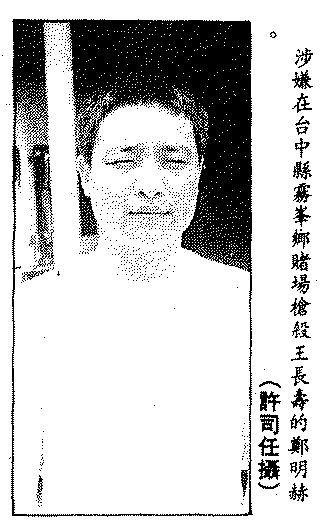 涉嫌在台中縣霧峯鄉賭場槍殺王長壽的鄭明赫
。
（許司任攝）